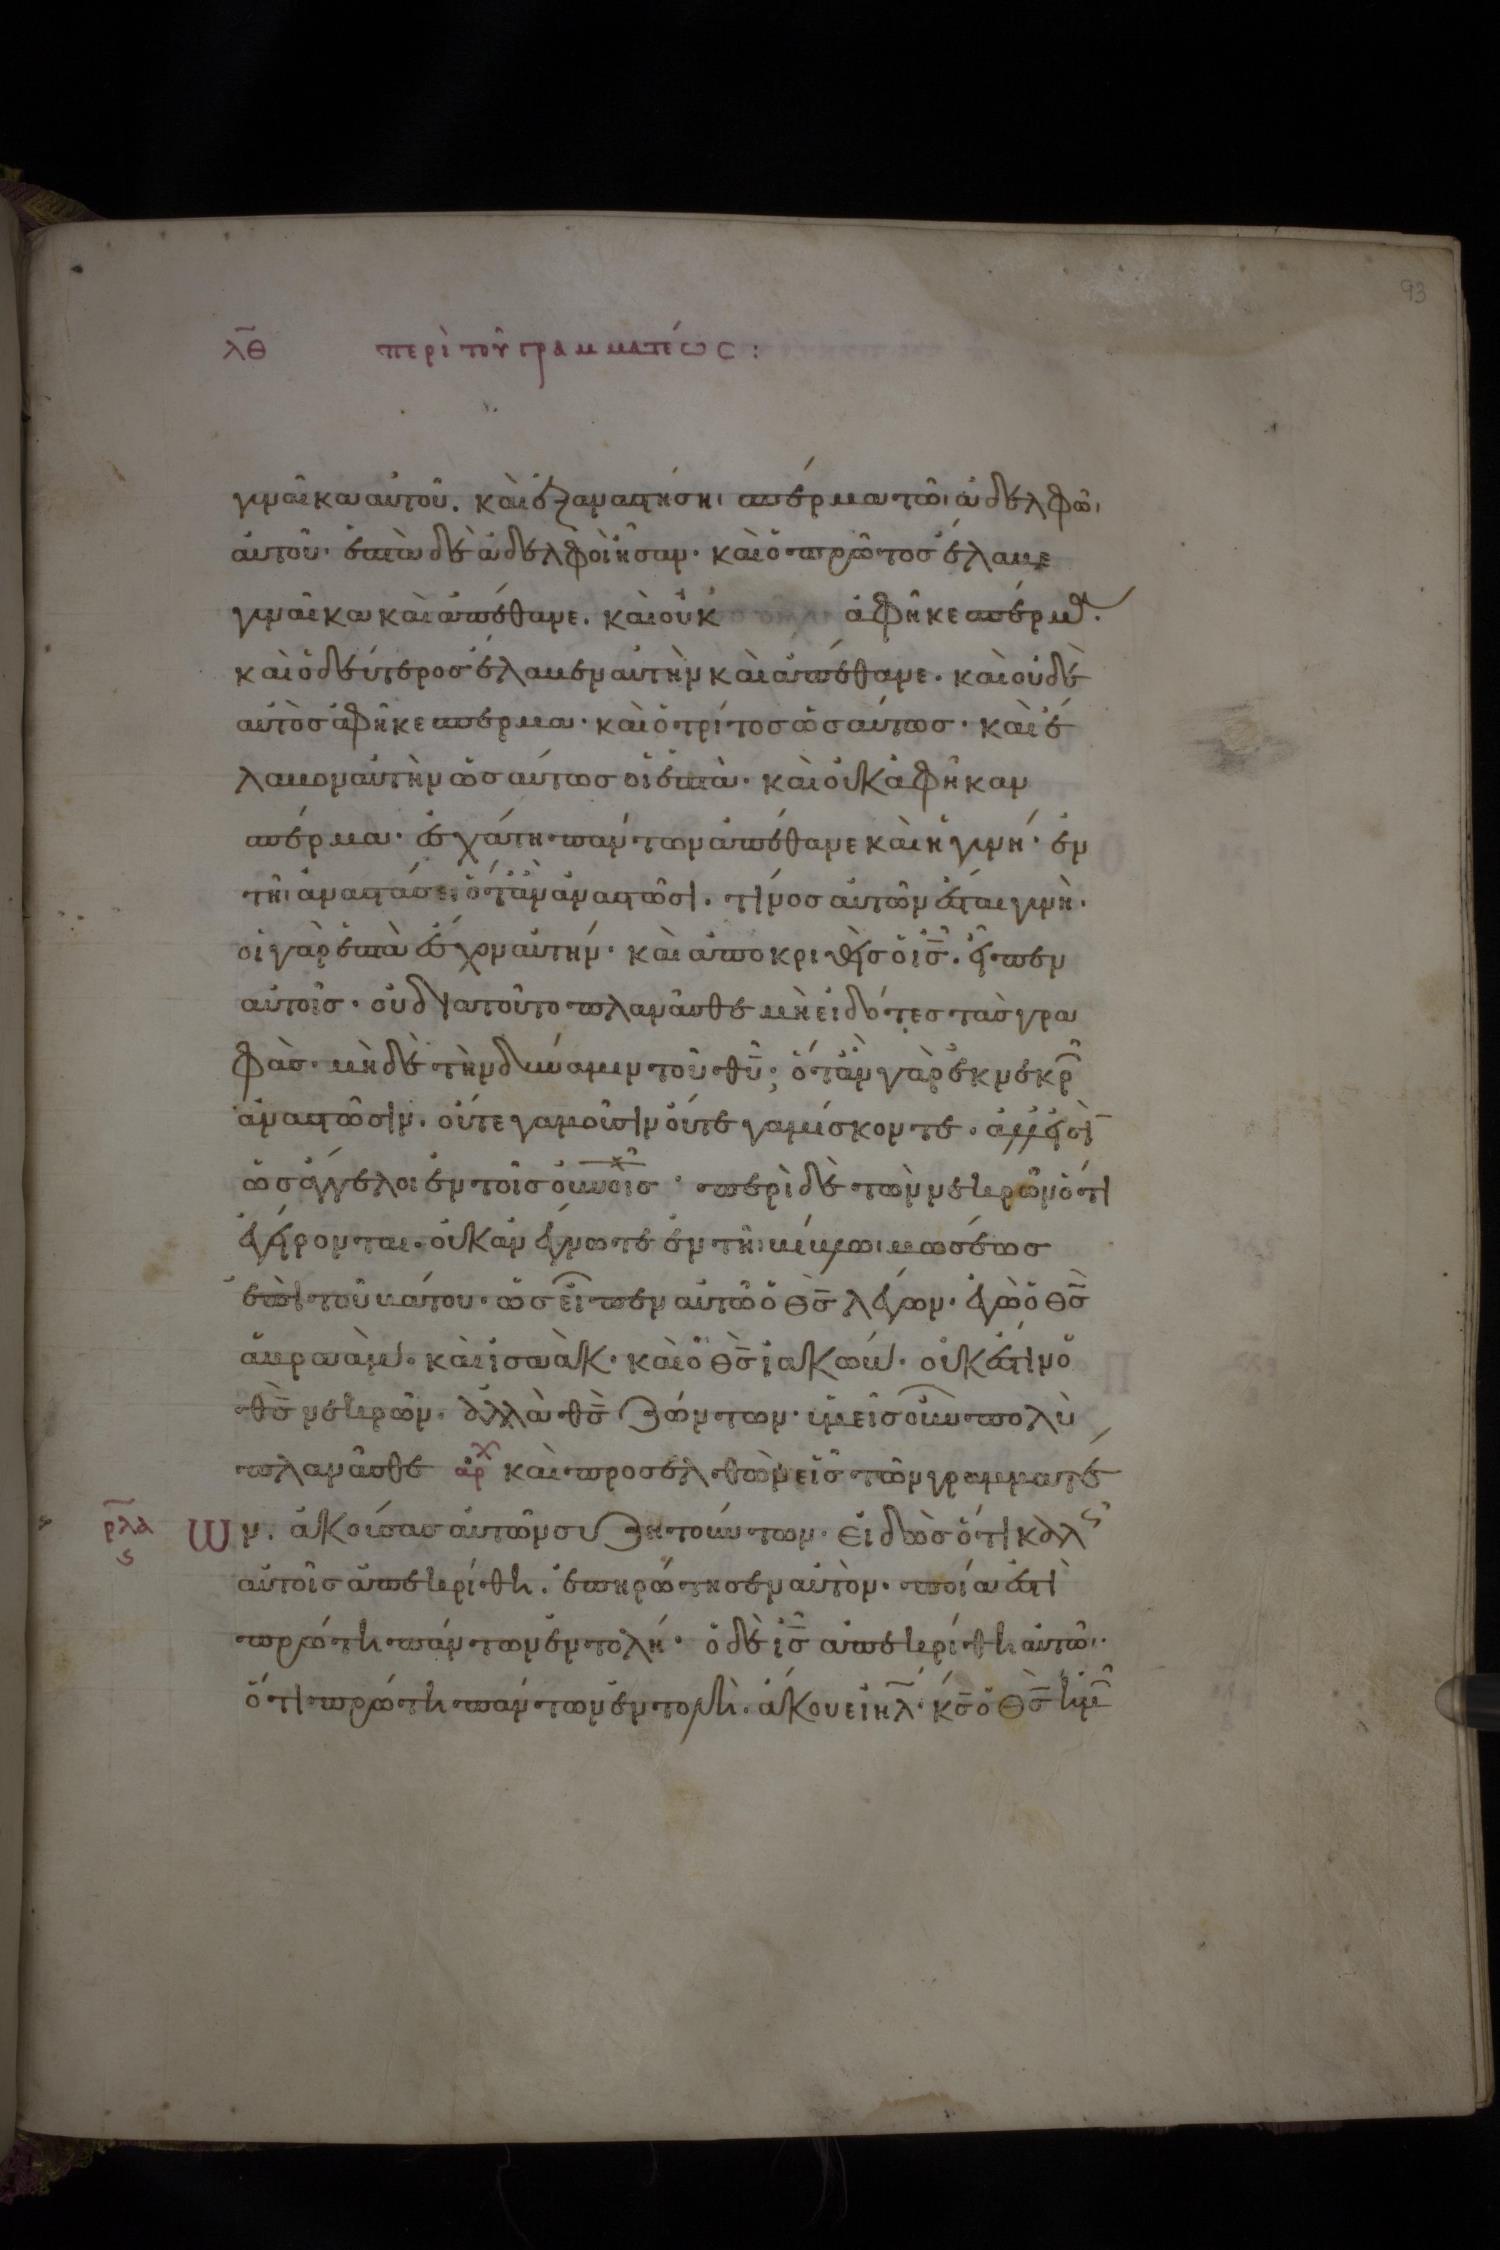 93
λθ περὶ τοῦ γραμματέως :
γυναῖκα αὐτοῦ. καὶ ἐξαναστήσηι σπέρμα τῶι ἀδελφῶι
αὐτοῦ· ἑπτὰ δὲ ἀδελφοὶ ἦσαν· καὶ ὁ πρῶτος ἔλαβε
γυναῖκα καὶ ἀπέθανε. καὶ οὐκ ἀφῆκε σπέρμα.
καὶ ὁ δεύτερος ἔλαβεν αὐτὴν καὶ ἀπέθανε. καὶ οὐδὲ
αὐτὸς ἀφῆκε σπέρμα· καὶ ὁ τρίτος ὡσαύτως· καὶ ἔ
λαβον αὐτὴν ὡσαύτως οἱ ἑπτὰ· καὶ οὐκ ἀφῆκαν
σπέρμα· ἐσχάτη πάντων ἀπέθανε καὶ ἡ γυνή· ἐν
τῆι ἀναστάσει ὅταν ἀναστῶσι. τίνος αὐτῶν ἔσται γυνὴ·
οἱ γὰρ ἑπτὰ ἔσχον αὐτήν· καὶ ἀποκριθεὶς ὁ ις. εἶπεν
αὐτοῖς· οὐ διατοῦτο πλανᾶσθε μὴ εἰδότες τὰς γρα
φὰς· μὴ δὲ τὴν δύναμιν τοῦ θυ; ὅταν γὰρ ἐκ νεκρ
ἀναστῶσιν. οὔτε γαμοῦσιν οὔτε γαμίσκοντε. ἀλλεἰσὶ
ὡς ἄγγελοι ἐν τοῖς οὐνοις· περὶ δὲ τῶν νεκρῶν ὅτι
ἐγείρονται. οὐκ ἀνέγνωτε ἐν τῆι βίβλωι μωσέως
ἐπὶ τοῦ βάτου· ὡς εἶπεν αὐτῶ ὁ θς λέγων· ἐγὼ ὁ θς
ἀβραὰμ. καὶ ἰσαὰκ· καὶ ὁ θς ἰακώβ. οὐκ ἔστιν ὁ
θς νεκρῶν. ἀλλὰ θς ζώντων· ὑμεῖς οὖν πολὺ
πλανᾶσθε ἀρχ καὶ προσελθὼν εἷς τῶν γραμματέ
ρλα ς ων. ἀκούσας αὐτῶν συζητούντων· εἰδὼς ὅτι καλς
αὐτοῖς ἀπεκρίθη. ἐπηρώτησεν αὐτὸν· ποία ἐστὶ
πρώτη πάντων ἐντολή· ὁ δὲ ις ἀπεκρίθη αὐτῶ·
ὅτι πρώτη πάντων ἐντολὴ. ἄκουε ιηλ· κς ὁ θς ἡμ